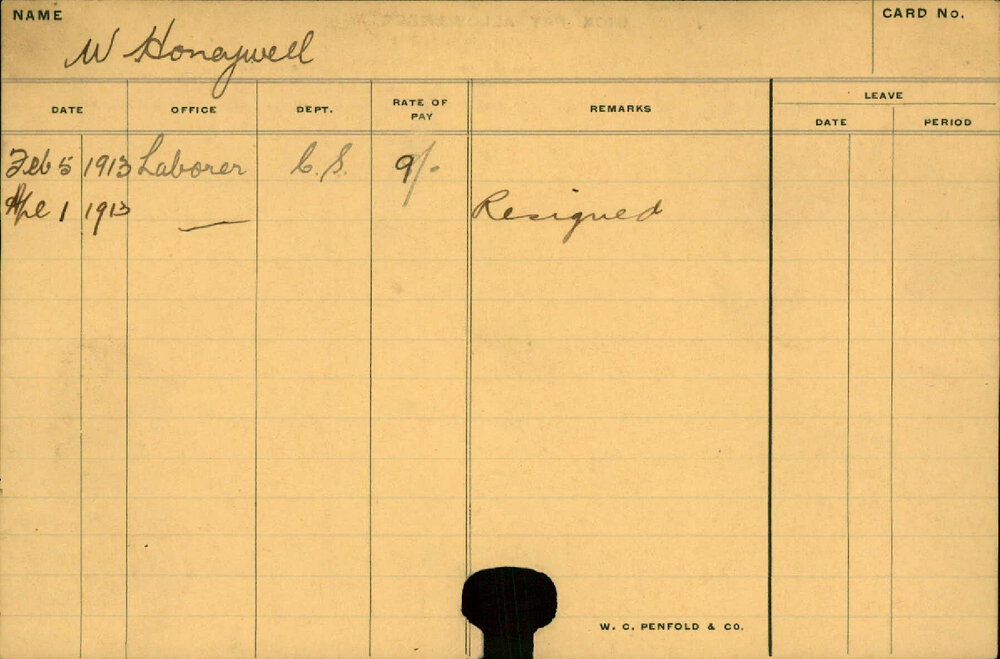 NAME
CARD No.
W Honeywell
DATE OFFICE DEPT. RATE OF PAY REMARKS LEAVE
DATE PERIOD
Feb 5 1913 Laborer C.S. 9/-
Apl 1 1913 — Resigned
W. C. PENFOLD & CO.